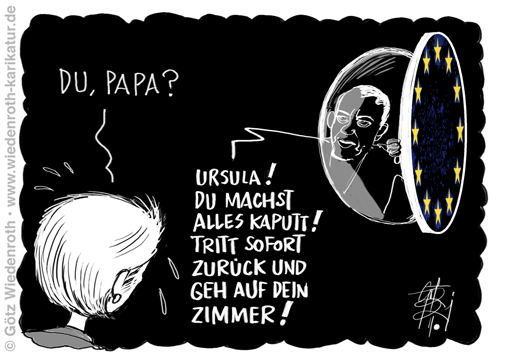 DU, PAPA?
URSULA!
DU MACHST
ALLES KAPUTT!
TRITT SOFORT
ZURÜCK UND
GEH AUF DEIN
ZIMMER!
© Götz Wiedenroth • www.wiedenroth-karikatur.de